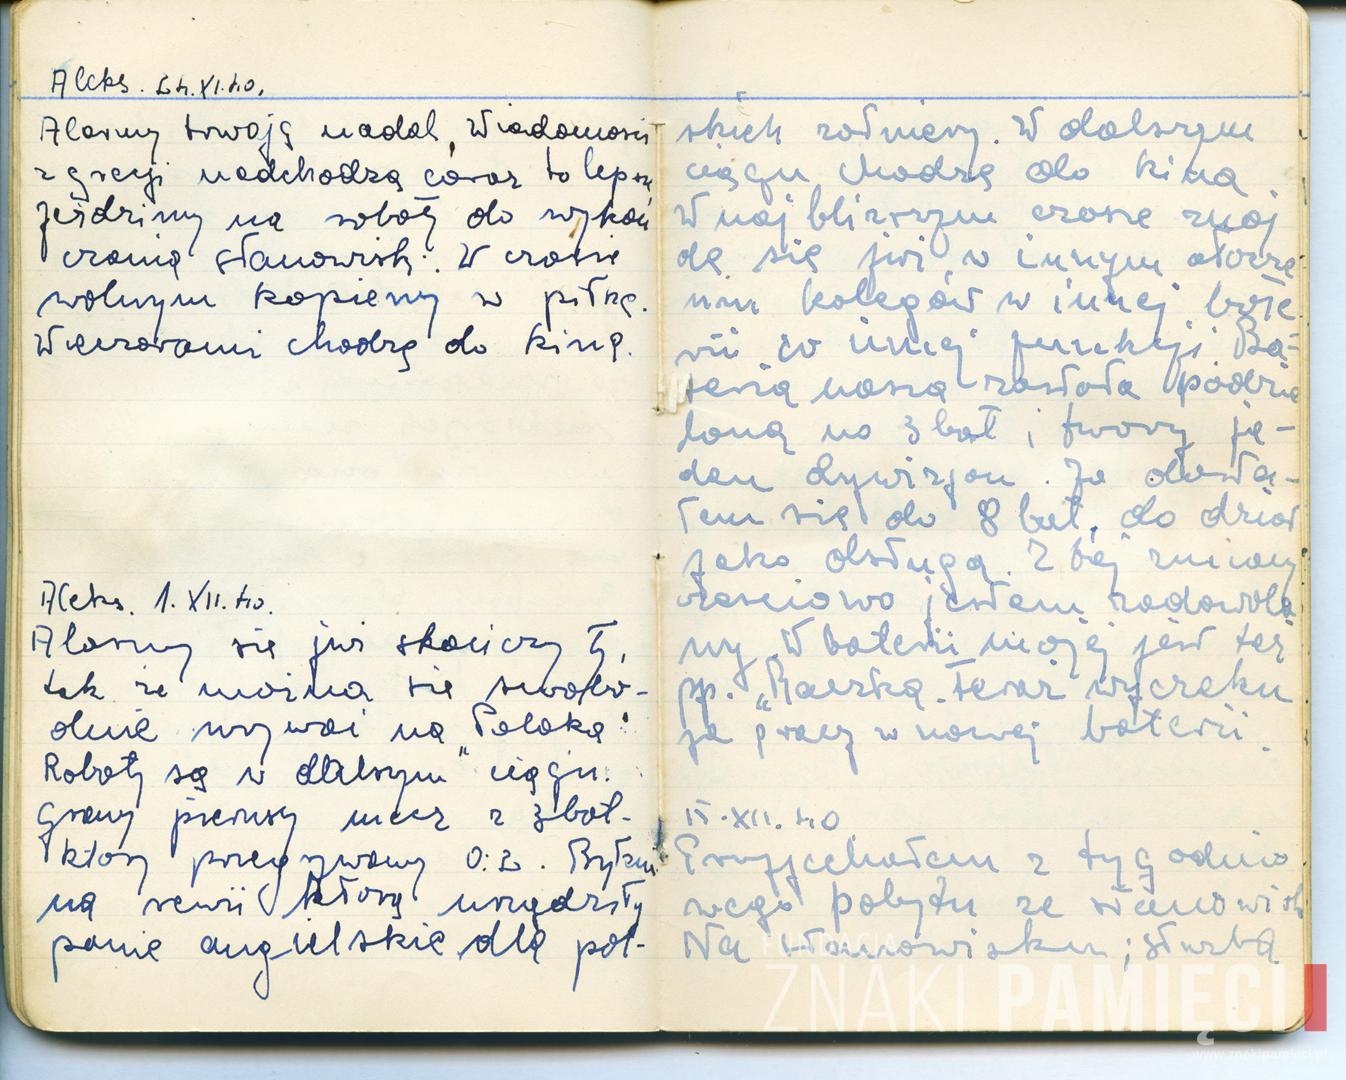 Aleks. 24.XI.40.
Alarmy trwają nadal, Wiadomości
z grecji nadchodzą coraz to lepsze
jeździmy na roboty do wykoń
czania stanowisk. W czasie
wolnym kopiemy w piłkę.
Wieczorami chodzę do kina.
Aleks. 1.XII.40.
Alarmy się już skończyły,
tak że można się swobo-
dnie wyrwać na "Polaka"
Roboty są w dalszym ciągu.
Gramy pierwszy mecz z 3 bat.
który przegrywamy 0:2. Byłem
na rewii którą urządziły
panie angielskie dla pol-
skich żołnierzy. W dalszym
ciągu chodzę do kina.
W najbliższym czasie znaj
dę się już w innym otocze-
niu kolegów w innej bate
rii i w innej funkcji. Ba-
teria nasza została podzie
lona na 3 bat. i tworzy je-
den dywizjon. Ja dosta-
łem się do 8 bat. do dział
jako obsługa. Z tej zmiany
częściowo jestem zadowolo
ny. W baterii mojej jest też
pp. "Raczka. Teraz wyczeku
ję pracy w nowej baterii.
15.XII.40
Przyjechałem z tygodnio
wego pobytu ze stanowisk
Na stanowisku; służba
FUNDACJA
ZNAKI PAMIĘCI
www.znakipamieci.pl